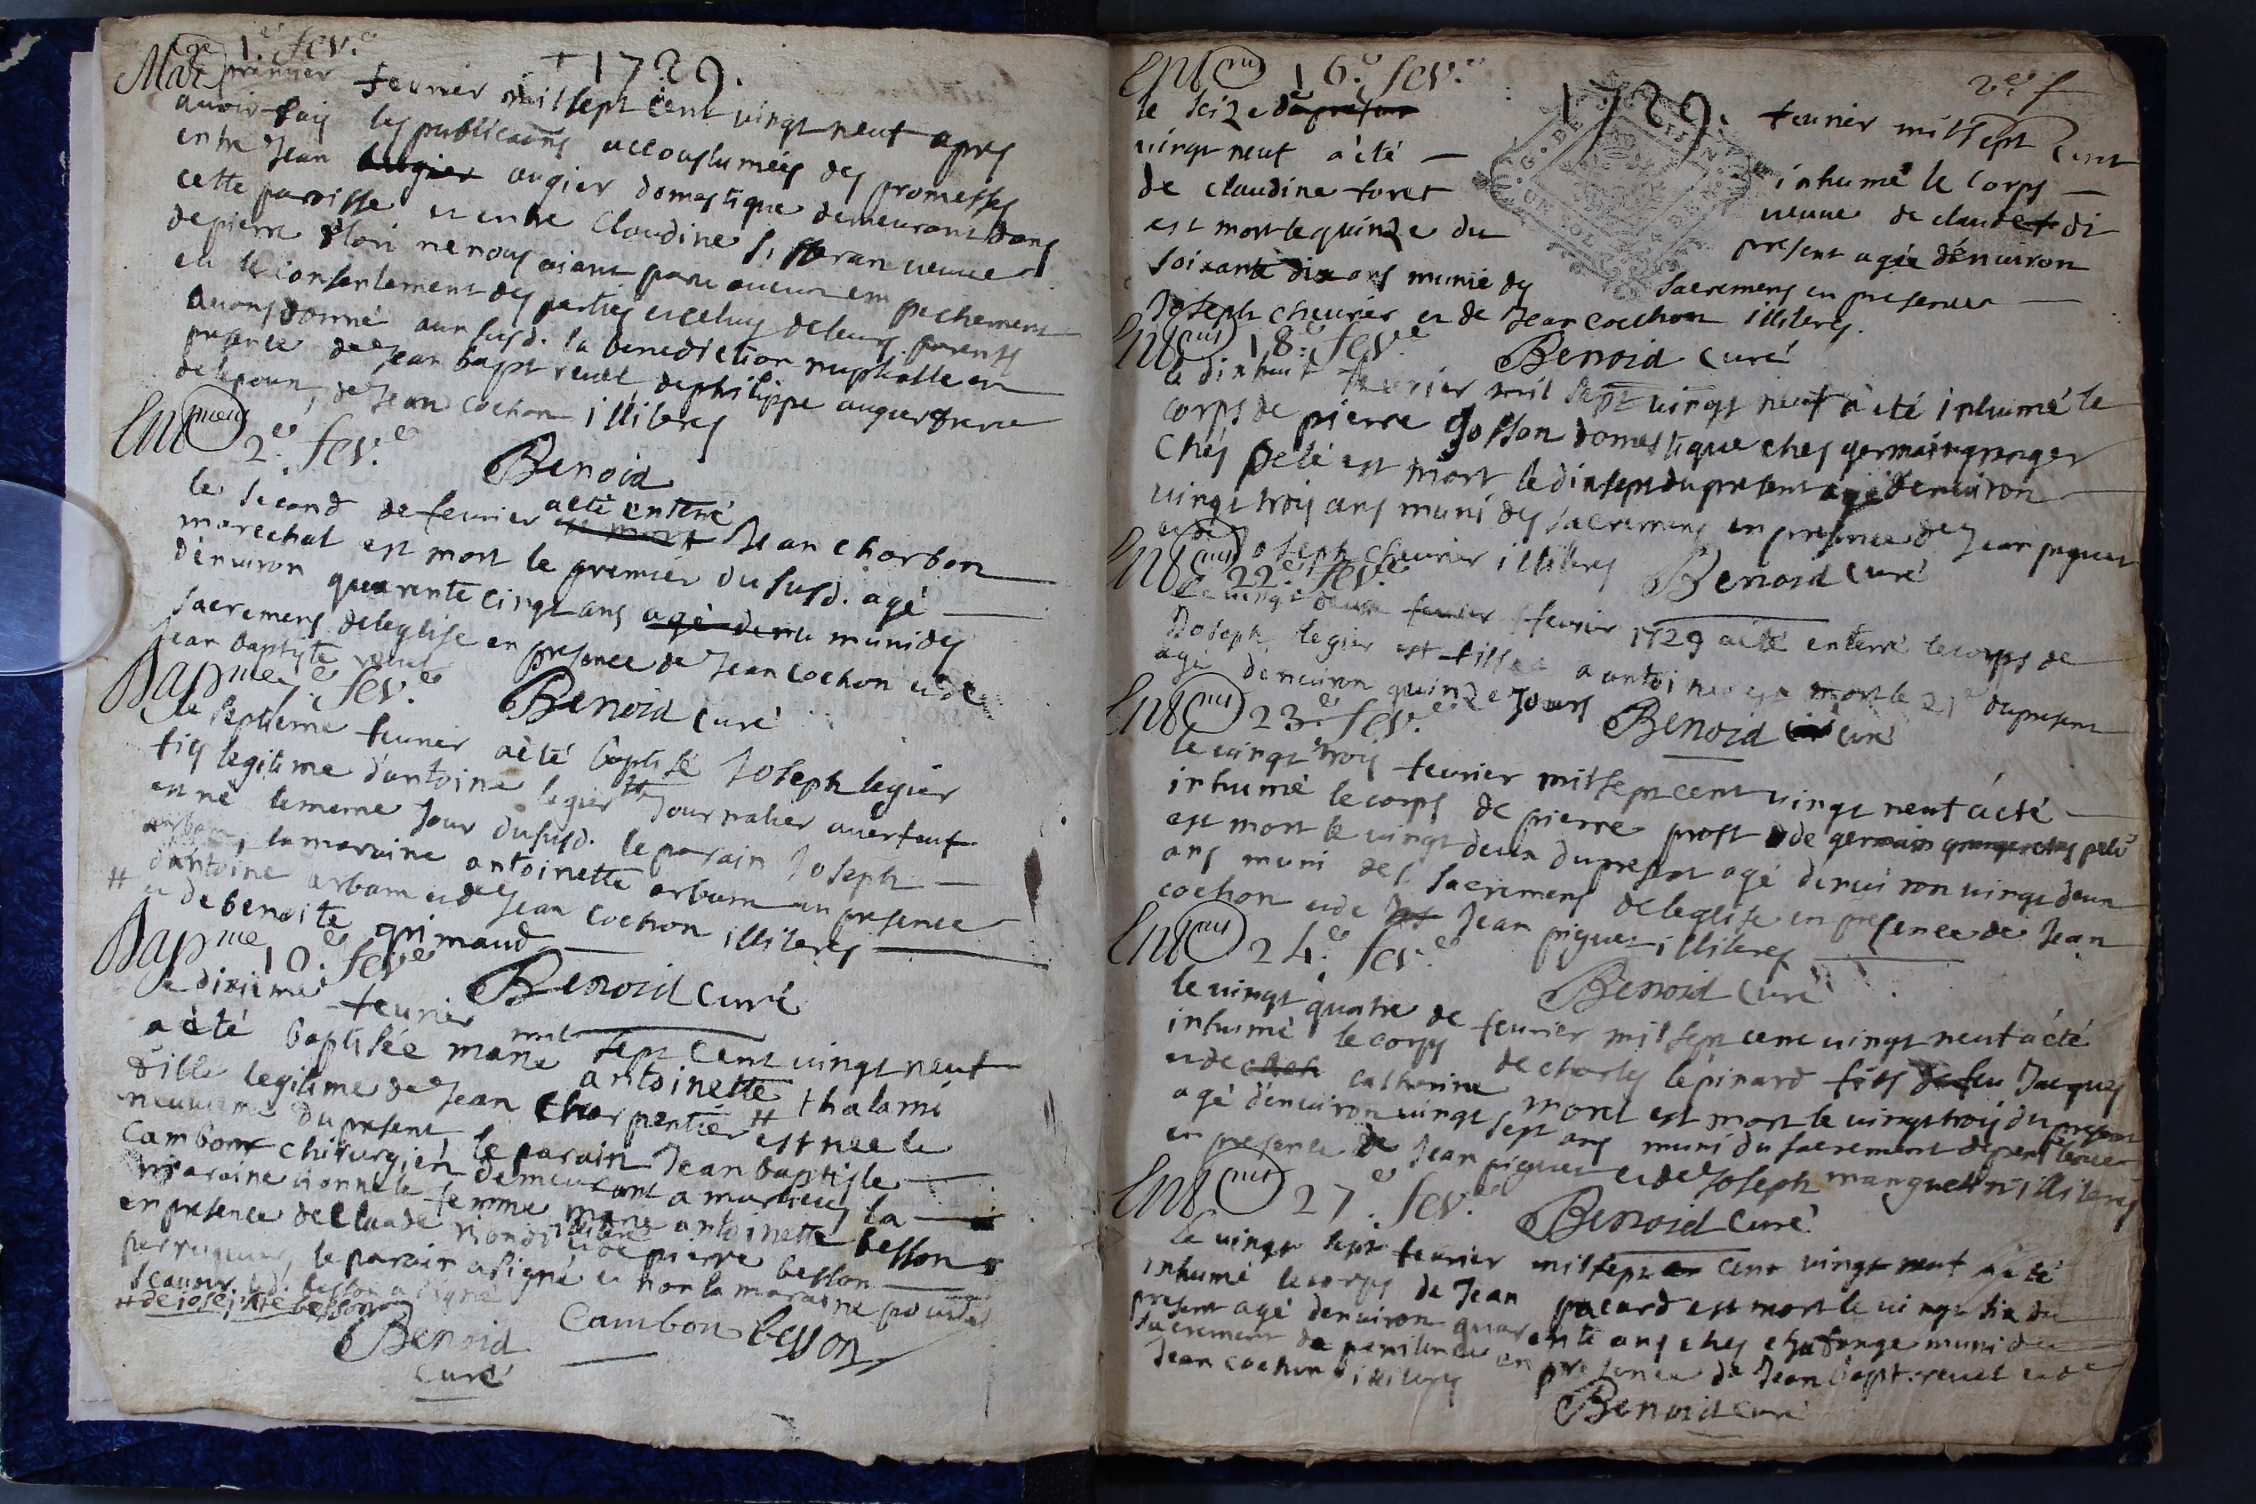 Mar.ge 1.er fev.er
+ 1729.
premier fevrier mil sept cent vingt neuf apres
avoir fais les publicaons accoustumeés des promesses
entre Jean augier domestique demeurant dans
cette paroisse et entre Claudine veuve
de pierre ne nous aiant paru aucun empechement
eu le Consentement des parties et celuy de leurs parents
avons donné aux susd. la benediction nuptialle en
presence de Jean bapt revel, de philippe augier frere
de lepoux, de Jean Cochon illiteres
Benoid
2.e fev.er
le second de fevrier a eté enterré Jean charbon
marechal est mort le premier du susd. agé
d'environ quarente cinqt ans muni des
sacremens de leglise en presence de Jean Cochon et de
Jean baptiste revel
Benoid curé
Bap.me 7.e fev.er
le septieme fevrier a èté baptisé Joseph legier
fils legitime d'antoine legier # Journalier
est né le meme Jour du susd. le parain Joseph
arbam, la maraine antoinette arbam en presence
d'antoine arbam et de Jean Cochon illiteres
# et de benoite grimaud
Benoid curé
Bap.me 10.e fev.er
le dixieme fevrier mil sept cent vingt neuf
a èté baptisée marie antoinette thalami
fille legitime de Jean Charpentier # est née le
neuvieme du present, le parain Jean baptiste
Cambon chirurgien demeurant a la
maraine femme marie antoinette besson
en presence de Claude et de pierre besson
perruquier, le parain a signé et non la maraine pour ne
scavoir led. besson a signé
# de josephte besson
Benoid Cambon besson
curé
Ent 16.e fev.er
2.e f
1729.
le seize fevrier mil sept Cent
vingt neuf a èté inhumé le Corps
de claudine foret veuve de claude
est mort le quinze du present agée d'environ
soixante dix ans munie des sacremens en presence
Joseph chevrier et de Jean Cochon illiteres.
Benoid curé
Ent 18.e fev.er
le dixhuit fevrier mil sept vingt neuf a èté inhumé le
corps de pierre Josson domestique ches germain granger
Chés pelé est mort le dixsept du present agé denviron
vingt trois ans muni des sacremens en presence de Jean piguet
et de Joseph chevrier illiteres
Benoid curé
Ent 22.e fev.er
le vingt deux fevrier 1729 a èté enterré le corps de
Joseph legier fils a antoine est mort le 21e du present
agé denviron quinze Jours
Benoid curé
Ent 23.e fev.er
le vingt trois fevrier mil sept cent vingt neuf a èté
inhumé le corps de pierre prost
est mort le vingt deux du present agé denviron vingt deux
ans muni des sacremens de leglise en presence de Jean
cochon et de Jean piguet illiteres
Benoid curé
Ent 24.e fev.er
le vingt quatre de fevrier mil sept cent vingt neuf a èté
inhumé le corps de charles lepinard fils de feu Jacques
et de catherine mort est mort le vingt trois du present
agé d'environ vingt sept ans muni du sacrement de penitence
en presence de Jean piguet et de Joseph illiteres
Benoid curé
Ent 27.e fev.er
le vingt sept fevrier mil sept cent vingt neuf a èté
inhumé le corps de Jean pacard est mort le vingt six du
present agé denviron quarente ans ches muni du
sacrement de penitence en presence de Jean bapt. revel et de
Jean cochon illiteres
Benoid curé